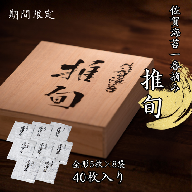 期間限定
佐賀海苔一番摘み
推旬
推旬
全形5枚×8袋
40枚入り